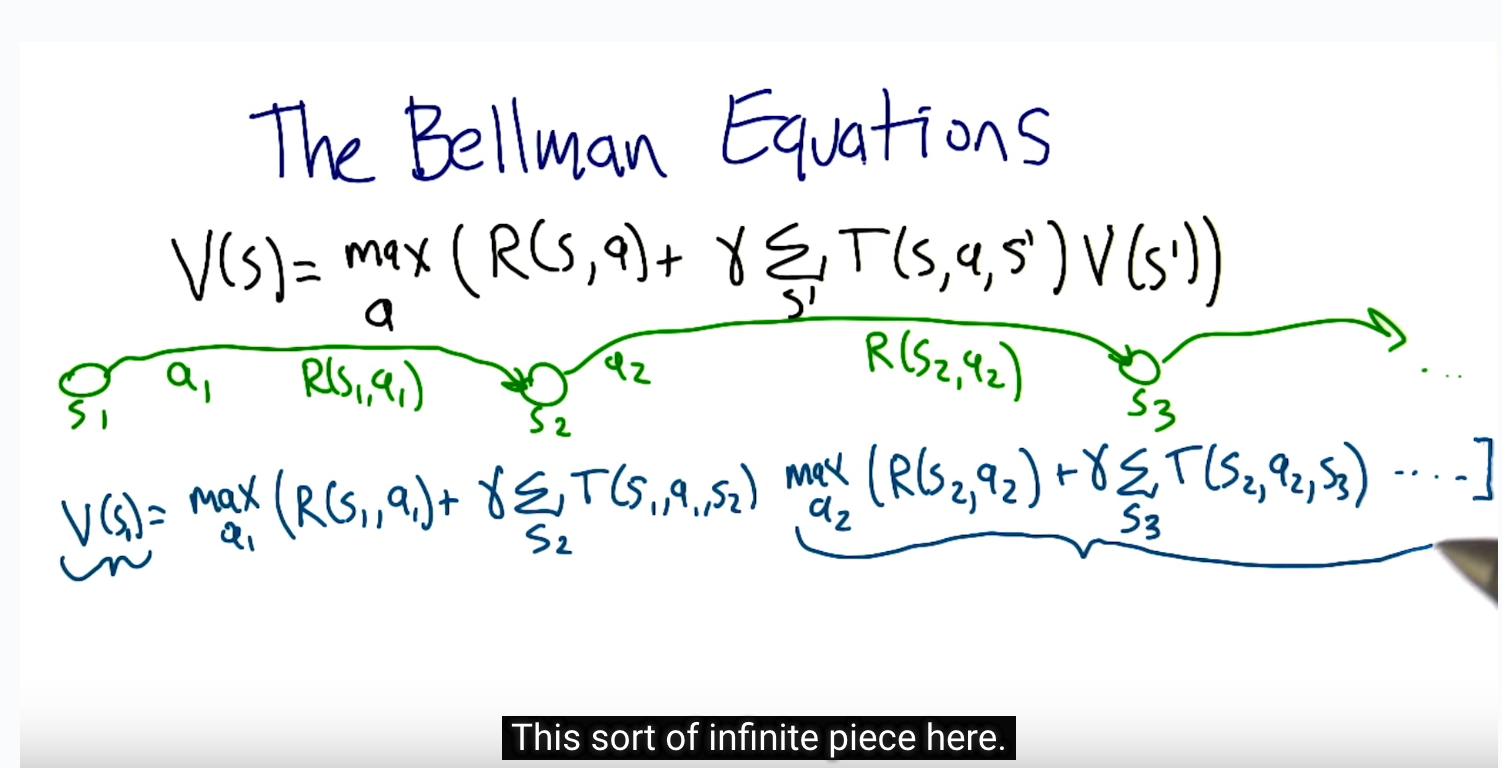 The Bellman Equations
V(s) = max a (R(s,a) + γ Σ s' T(s,a,s') V(s'))
s1 a1 R(s1,a1) s2 a2 R(s2,a2) s3 ...
V(s1) = max a1 (R(s1,a1) + γ Σ s2 T(s1,a1,s2) max a2 (R(s2,a2) + γ Σ s3 T(s2,a2,s3) .....]
This sort of infinite piece here.